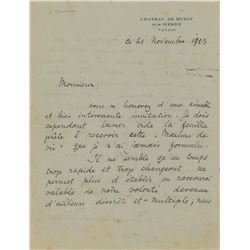 CHÂTEAU DE MUZOT
SUR SIERRE
VALAIS
ce 21 Novembre 1923
Monsieur,
vous m'honorez d'une aimable
et bien intéressante invitation. Je dois
cependant laisser vide la feuille
prête à recevoir cette "Maxime de
vie" que je n'ai jamais formulée.
Il me semble qu'un temps
trop rapide et trop changeant ne
permet plus d'établir un raccourci
valable de notre volonté devenue
d'ailleurs discrète et "multiple; mais